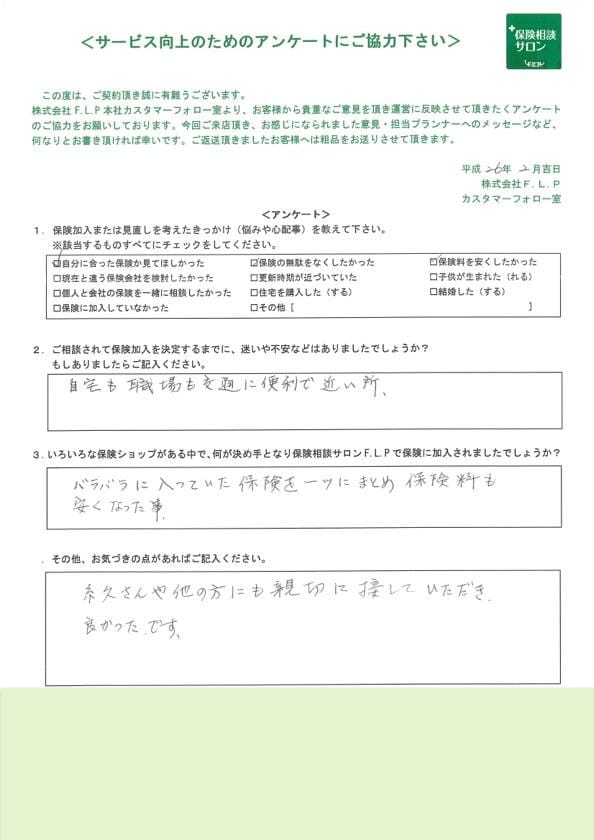 ＜サービス向上のためのアンケートにご協力下さい＞
保険相談
サロン
F.L.P
この度は、ご契約頂き誠に有難うございます。
株式会社F.L.P本社カスタマーフォロー室より、お客様から貴重なご意見を頂き運営に反映させて頂きたくアンケート
のご協力をお願いしております。今回ご来店頂き、お感じになられました意見・担当プランナーへのメッセージなど、
何なりとお書き頂ければ幸いです。ご返送頂きましたお客様へは粗品をお送りさせて頂きます。
平成 26年 2月吉日
株式会社F.L.P
カスタマーフォロー室
＜アンケート＞
1．保険加入または見直しを考えたきっかけ（悩みや心配事）を教えて下さい。
※該当するものすべてにチェックをしてください。
☑自分に合った保険か見てほしかった ☑保険の無駄をなくしたかった ☑保険料を安くしたかった
□現在と違う保険会社を検討したかった □更新時期が近づいていた □子供が生まれた（れる）
□個人と会社の保険を一緒に相談したかった □住宅を購入した（する） □結婚した（する）
□保険に加入していなかった □その他［ ］
2．ご相談されて保険加入を決定するまでに、迷いや不安などはありましたでしょうか？
もしありましたらご記入ください。
自宅も職場も交通に便利で近い所、
3．いろいろな保険ショップがある中で、何が決め手となり保険相談サロンF.L.Pで保険に加入されましたでしょうか？
バラバラに入っていた保険を一ツにまとめ保険料も
安くなった事、
．その他、お気づきの点があればご記入ください。
糸久さんや他の方にも親切に接していただき、
良かったです、